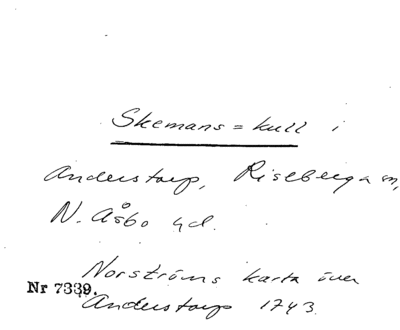 Skemans=kull i
Anderstorp, Riseberga sn,
N. Åsbo hd.
Norströms karta över
Nr 7339.
Anderstorp 1743.